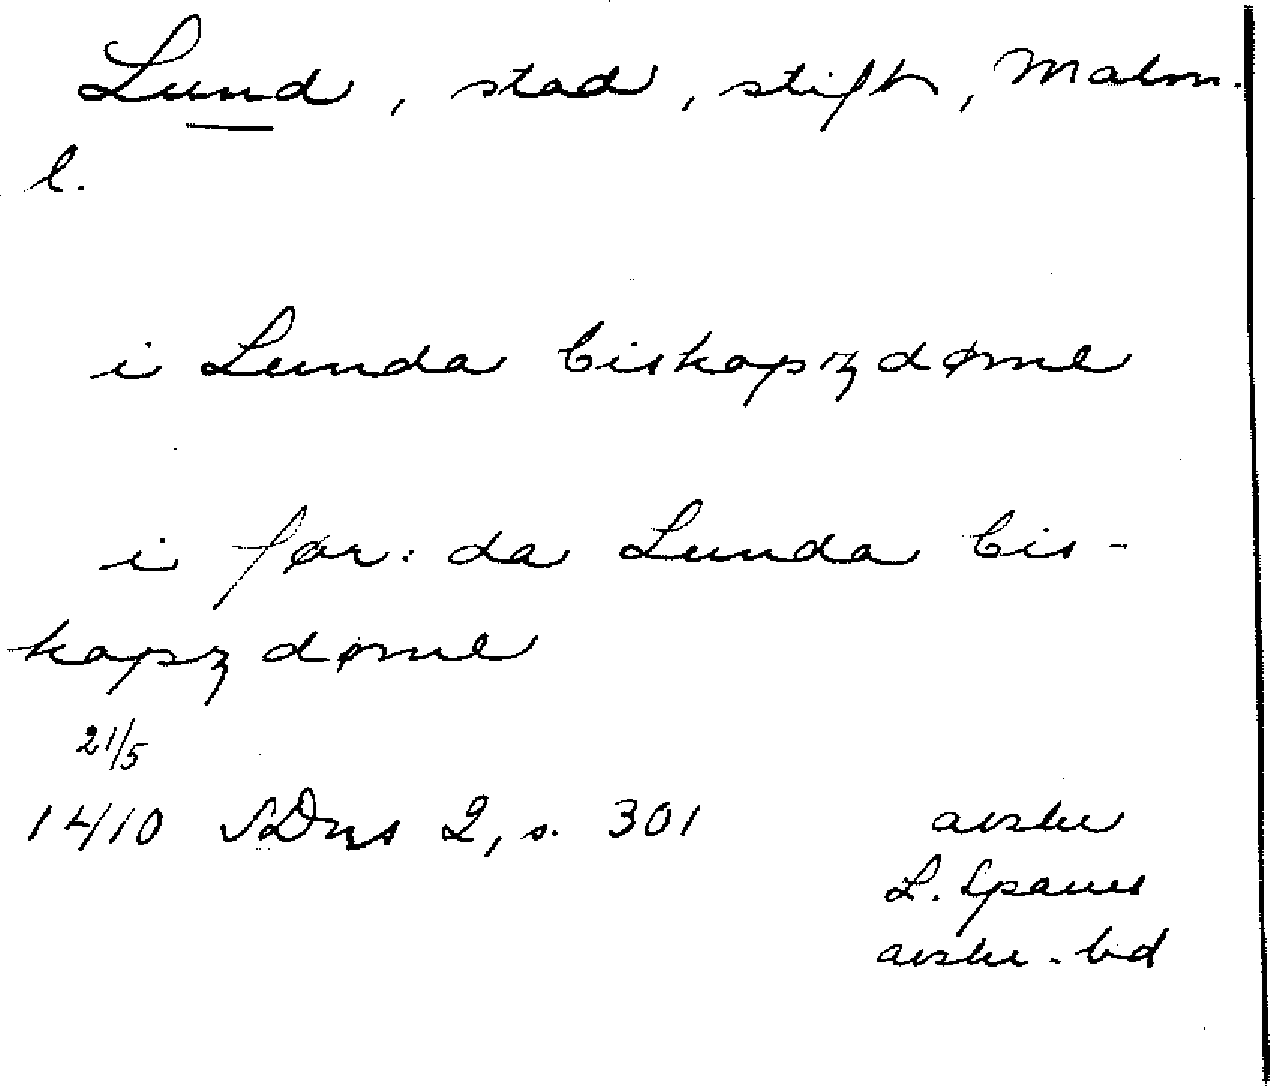 Lund, stad, stift, Malm.
l.
i Lunda biskopzdøme
i før: da Lunda bis-
kopz døme
21/5
1410 SDns 2, s. 301
avskr
L. Spaues
avskr. bd